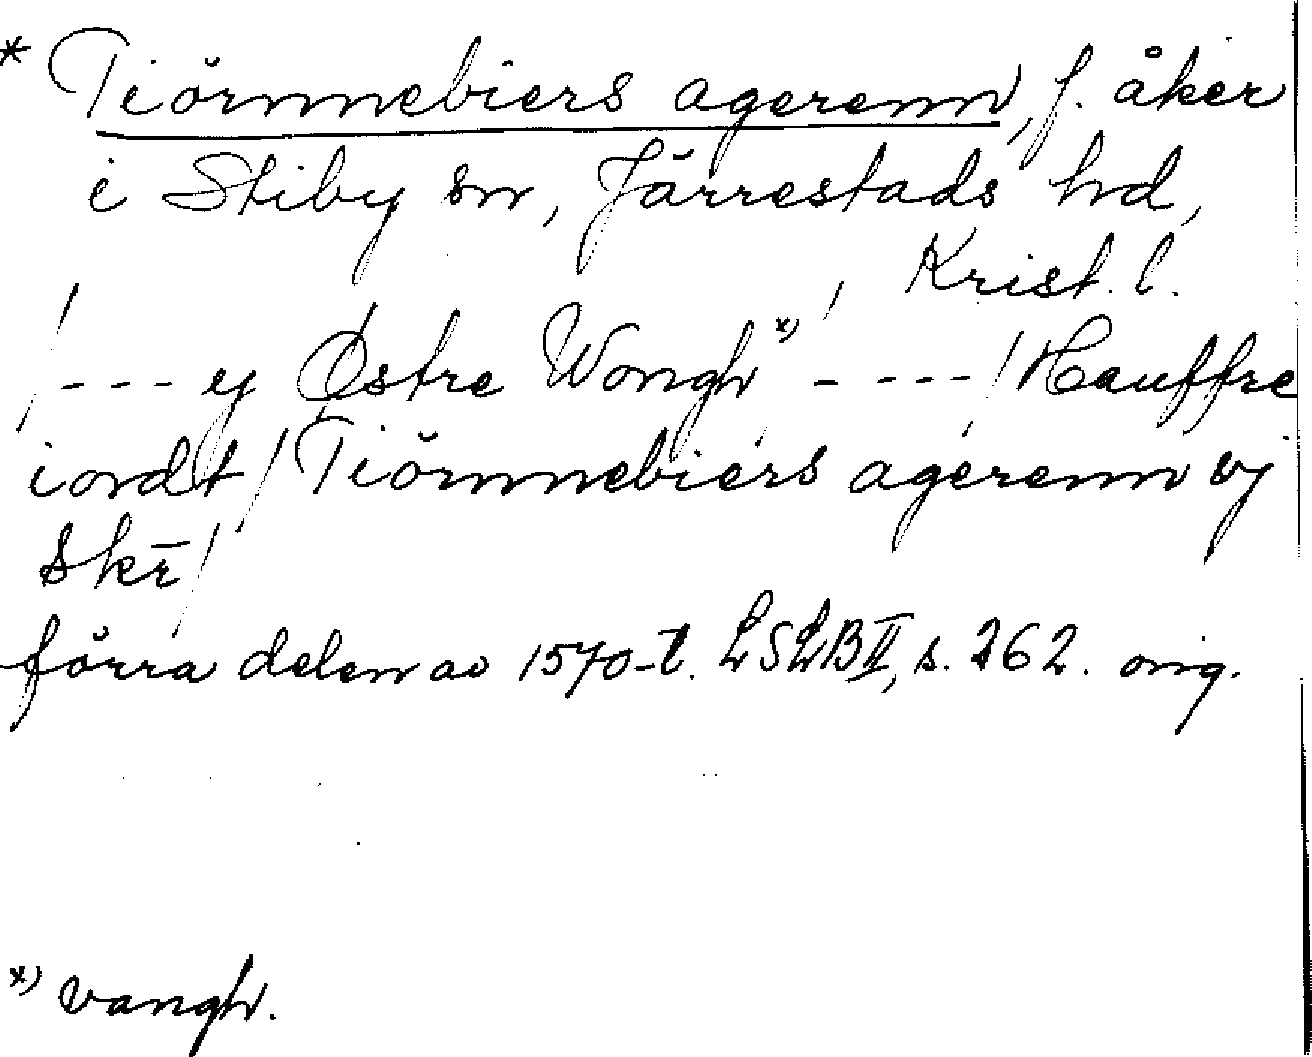 * Tiörnnebiers agerenn, f. åker
i Stiby sn, Järrestads hd,
Krist. l.
/ - - - ej Østre Wongh *) - - - - / Hauffre
iordt / Tiörnnebiers agerenn vj
skr̄ /
förra delen av 1570-t. LSLB II, s. 262. orig.
*) vangh.